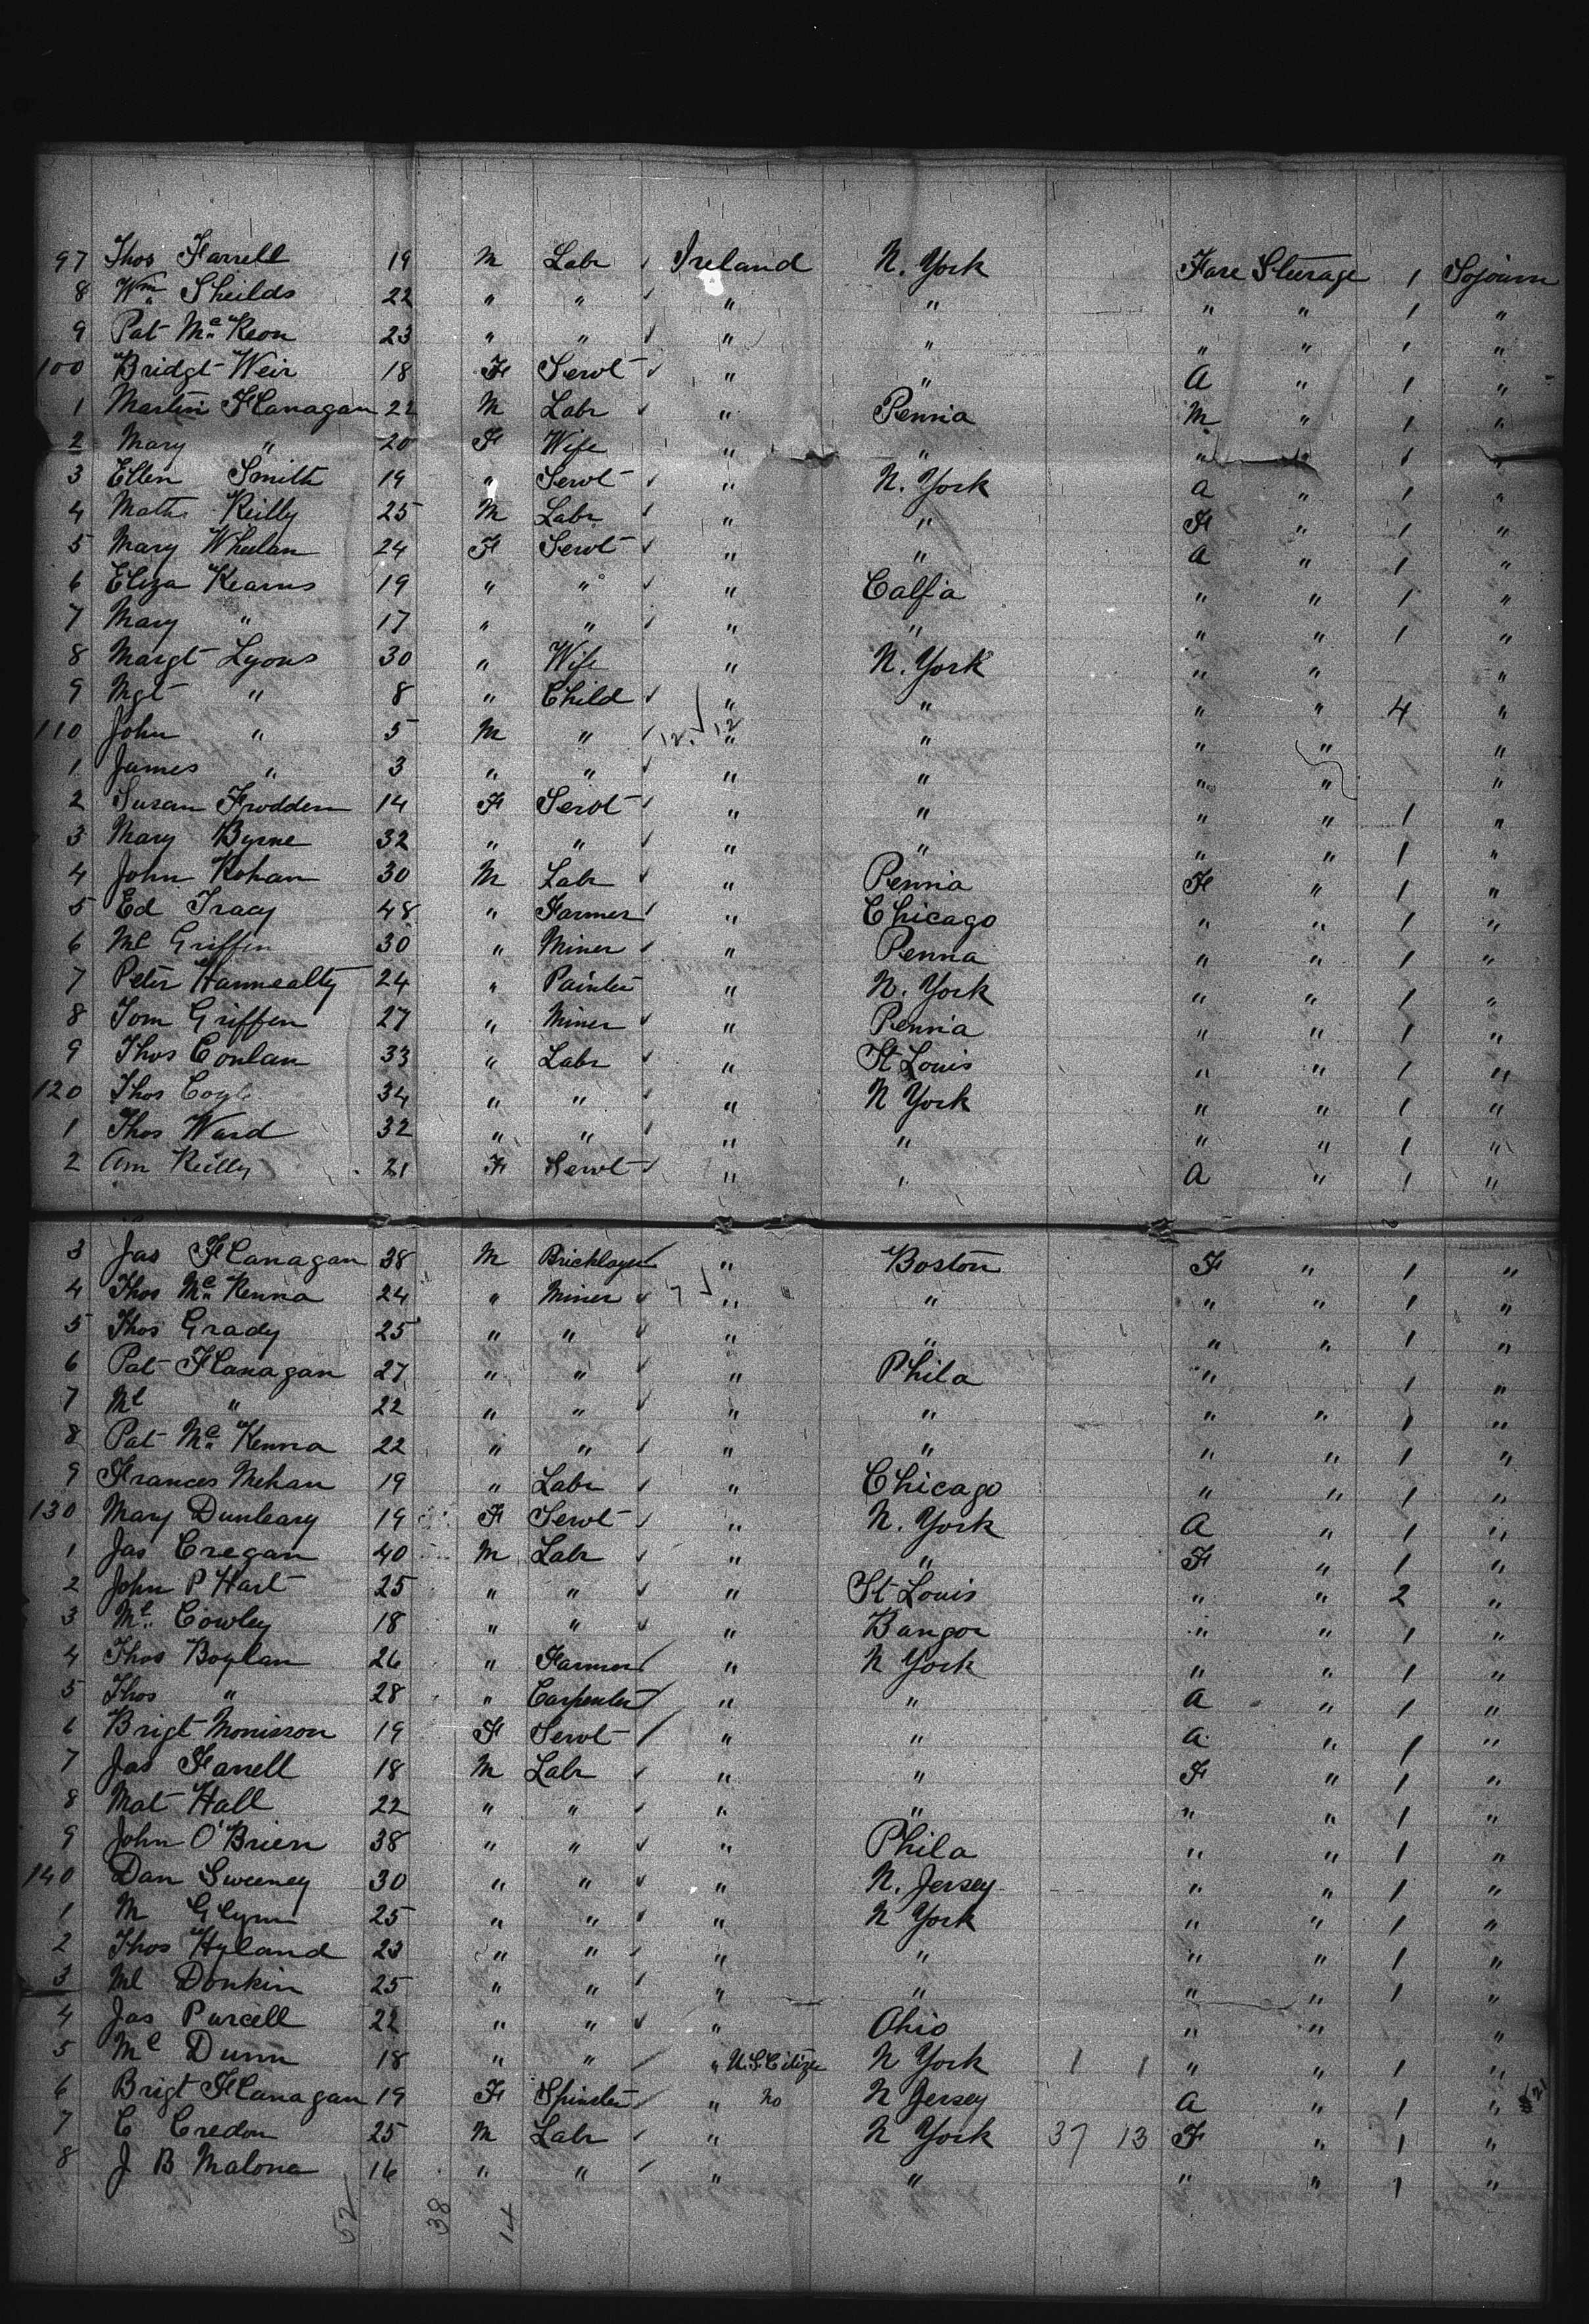 97 Thos Farrell 19 M Labr Ireland N. York Fare Steerage 1 Sojourn
8 Wm Sheilds 22 " " " " " " 1 "
9 Pat McKeon 23 " " " " " " 1 "
100 Bridgt Weir 18 F Servt " " A " 1 "
1 Martin Flanagan 22 M Labr " Penna M " 1 "
2 Mary " 20 F Wife " " " " 1 "
3 Ellen Smith 19 " Servt " N. York a " 1 "
4 Mathw Reilly 25 M Labr " " F " 1 "
5 Mary Wheelan 24 F Servt " " a " 1 "
6 Eliza Kearns 19 " " " Calfa " " 1 "
7 Mary " 17 " " " " " " 1 "
8 Margt Lyons 30 " Wife " N. York " " "
9 Mgt " 8 " Child " " " " 4 "
110 John " 5 M " 12 12 " " " " "
1 James " 3 " " " " " " "
2 Susan Frodden 14 F Servt " " " " 1 "
3 Mary Byrne 32 " " " " " " 1 "
4 John Rohan 30 M Labr " Penna F " 1 "
5 Ed Tracy 48 " Farmer " Chicago " " 1 "
6 Ml Griffin 30 " Miner " Penna " " 1 "
7 Peter Hannealty 24 " Painter " N. York " " 1 "
8 Tom Griffen 27 " Miner " Penna " " 1 "
9 Thos Conlan 33 " Labr " St Louis " " 1 "
120 Thos Coyle 34 " " " N York " " 1 "
1 Thos Ward 32 " " " " " " 1 "
2 Ann Reilly 21 F Servt " " A " 1 "
3 Jas Flanagan 38 M Bricklayer " Boston F " 1 "
4 Thos McKenna 24 " Miner 7 " " " " 1 "
5 Thos Grady 25 " " " " " " 1 "
6 Pat Flanagan 27 " " " Phila " 1 "
7 Ml " 22 " " " " " " 1 "
8 Pat McKenna 22 " " " " " " 1 "
9 Frances Mehan 19 " Labr " Chicago " " 1 "
130 Mary Dunleary 19 F Servt " N. York a " 1 "
1 Jas Cregan 40 M Labr " " F " 1 "
2 John P Hart 25 " " " St Louis " " 2 "
3 Ml Cowley 18 " " " Bangor " " 1 "
4 Thos Boylan 26 " Farmer " N York " " 1 "
5 Thos " 28 " Carpenter " " a " 1 "
6 Brigt Morrisson 19 F Servt " " a " 1 "
7 Jas Farrell 18 M Labr " " F " 1 "
8 Mat Hall 22 " " " " " " 1 "
9 John O'Brien 38 " " " Phila " " 1 "
140 Dan Sweeney 30 " " " N. Jersey " " 1 "
1 M Glynn 25 " " " N York " " 1 "
2 Thos Hyland 23 " " " " " " 1 "
3 Ml Donkin 25 " " " " " " 1 "
4 Jas Purcell 22 " " " Ohio " " "
5 Ml Dunn 18 " " " U.S. Citizen N York 1 1 " " 1 "
6 Brigt Flanagan 19 F Spinster " No N Jersey a " 1 " 21
7 C Credon 25 M Labr " N York 37 13 F " 1 "
8 J B Malona 16 " " " " " " 1 "
52 38 14